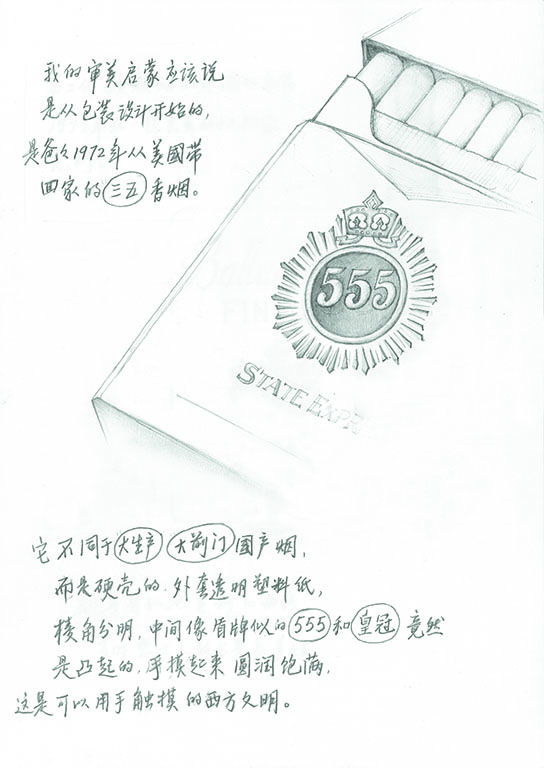 我的审美启蒙应该说
是从包装设计开始的，
是爸々1972年从美國带
回家的三五香烟。
555
STATE EXPR
它不同于大生产 大前门国产烟，
而是硬壳的.外套透明塑料纸，
棱角分明，中间像盾牌似的555和皇冠 竟然
是凸起的，手摸起来圆润饱满，
这是可以用手触摸的西方文明。